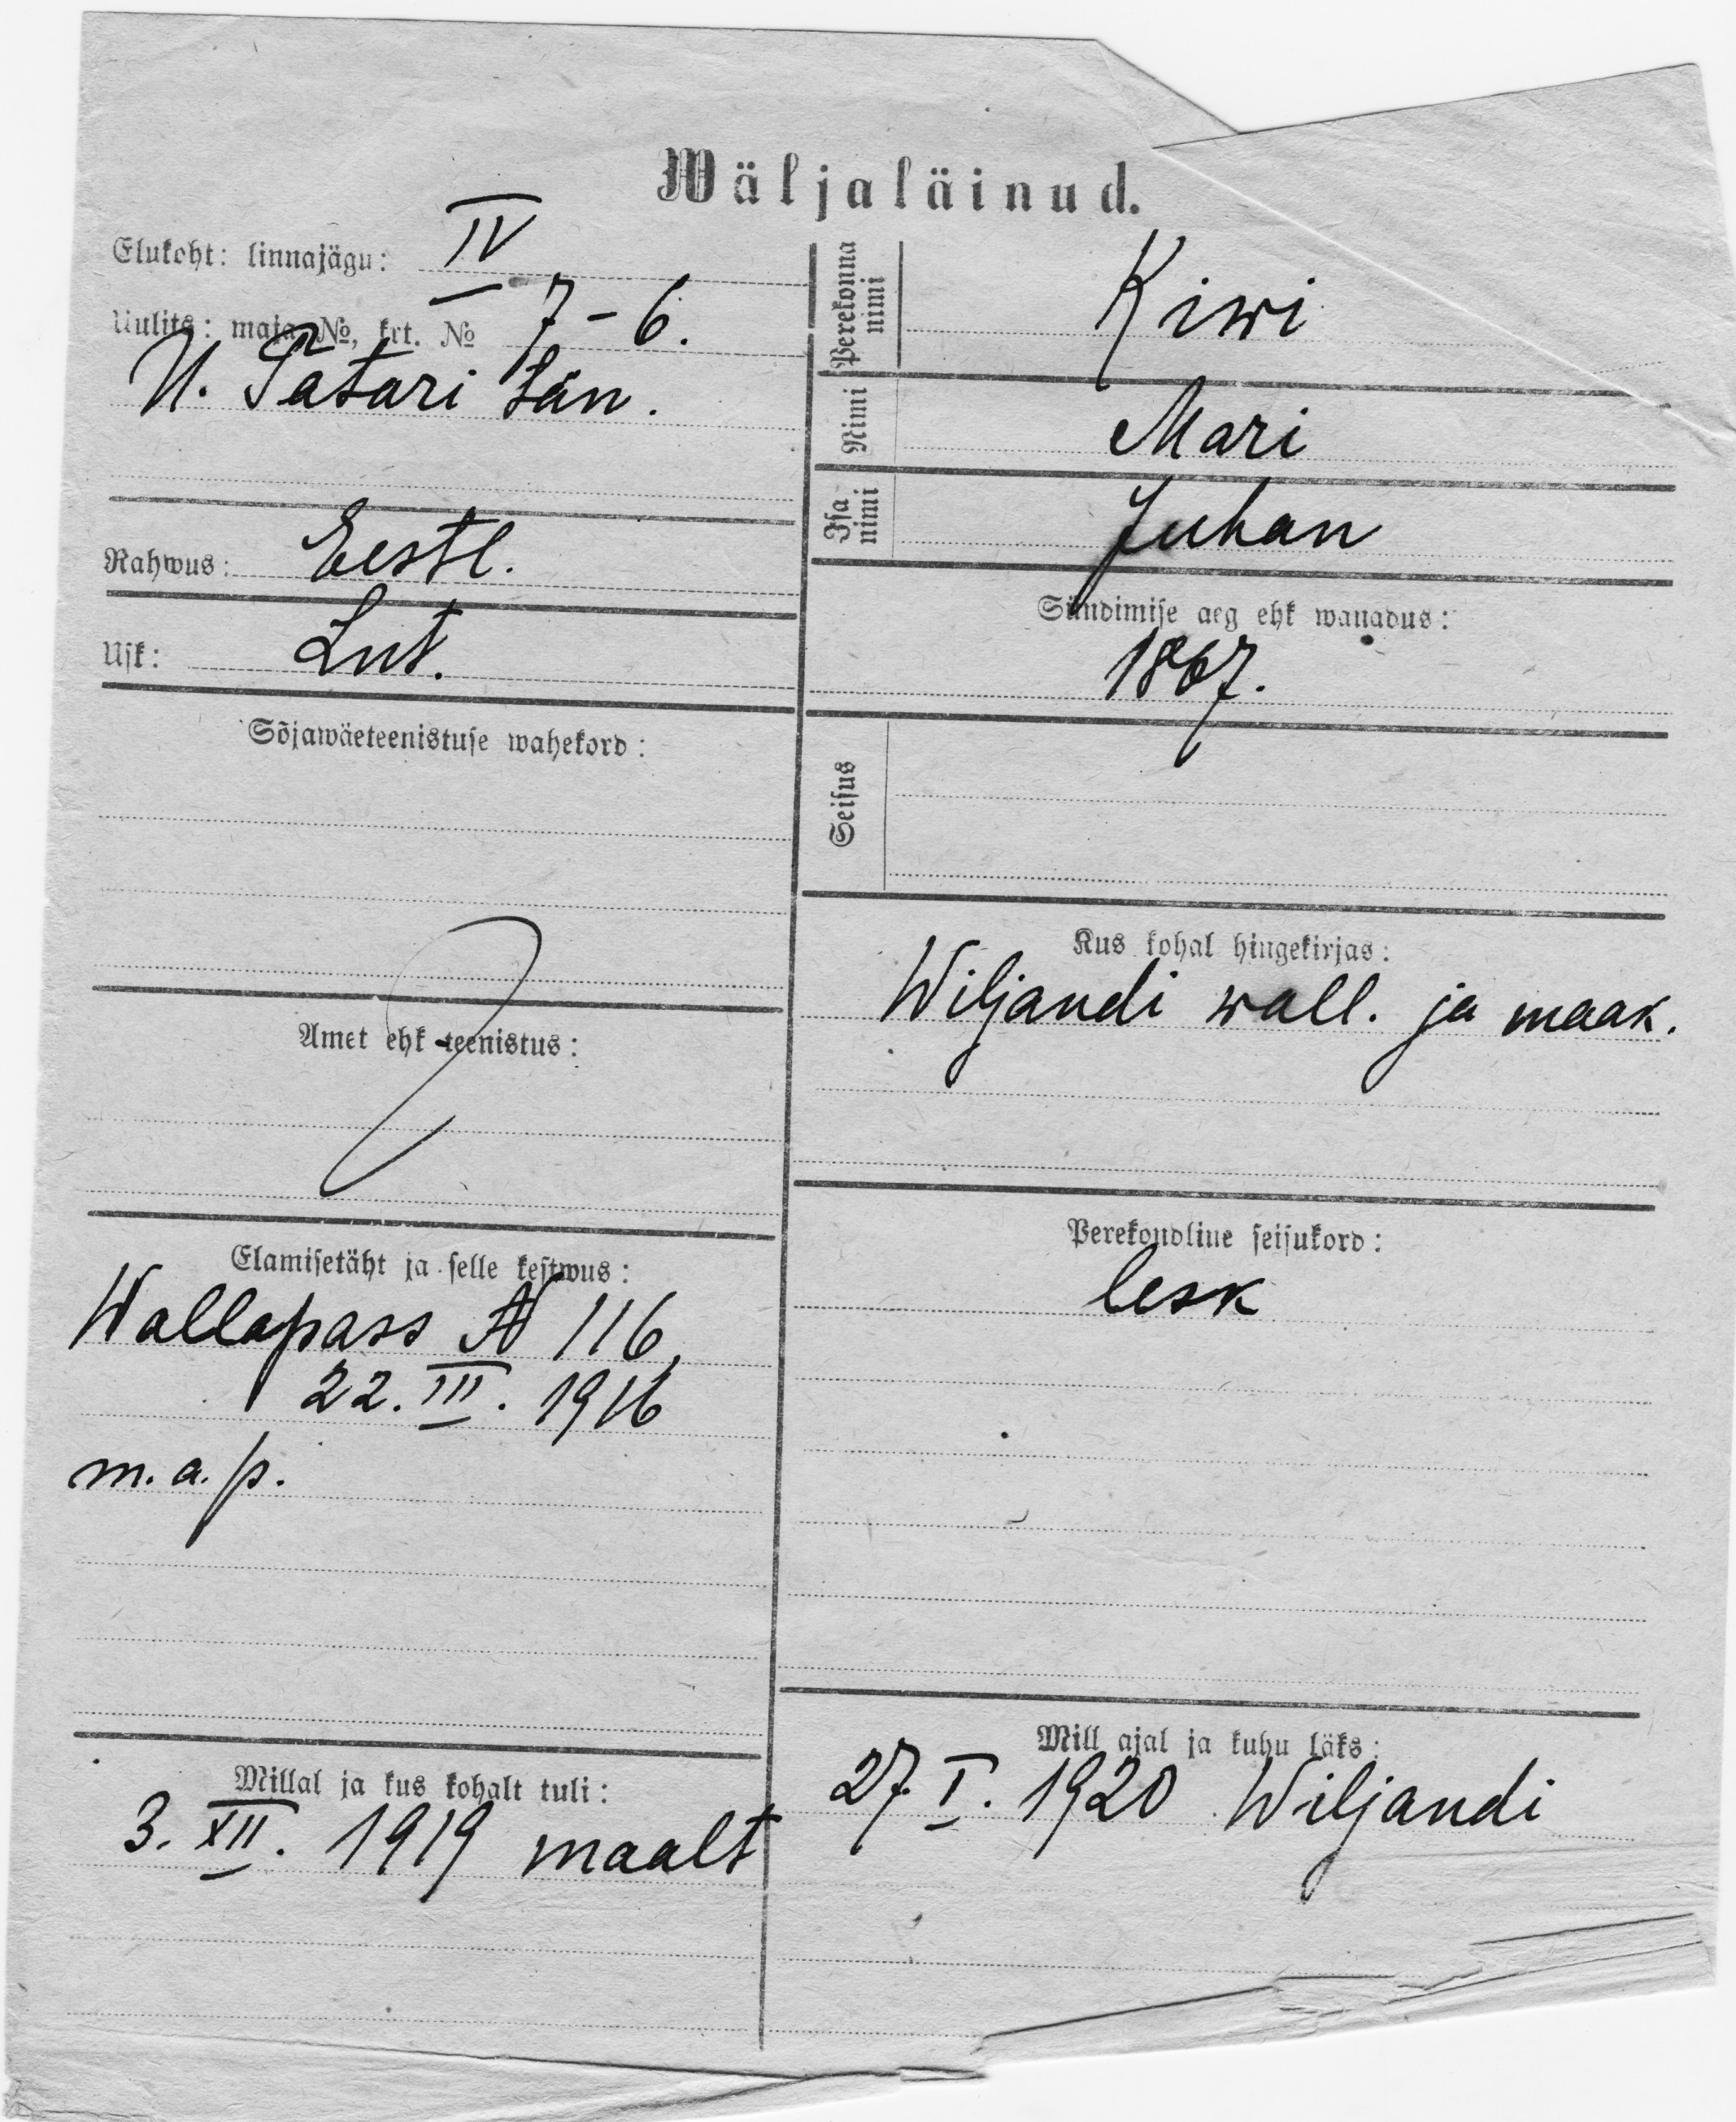 Wäljaläinud.
Elukoht: linnajägu: IV
Uulits: maja №, krt. № 7-6.
U. Tatari tän.
Rahwus: Eestl.
Usk: Lut.
Sõjawäeteenistuse wahekord:
Amet ehk teenistus:
Elamisetäht ja selle kestwus:
Wallapass № 116,
22. III. 1916
m. a. p.
Millal ja kus kohalt tuli:
3. XII. 1919 maalt
Perekonna nimi Kiwi
Nimi Mari
Isa nimi Juhan
Sündimise aeg ehk wanadus:
1867.
Seisus
Kus kohal hingekirjas:
Wiljandi wall. ja maak.
Perekondline seisukord:
lesk
Mill ajal ja kuhu läks:
27. I. 1920 Wiljandi